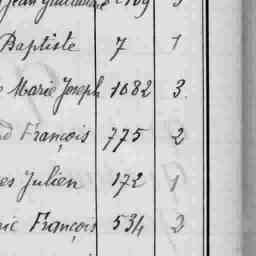 Jean Guillaume 2109 3
Baptiste 7 1
Marie Joseph 1082 3.
François 775 2
Julien 172 1
François 534 2